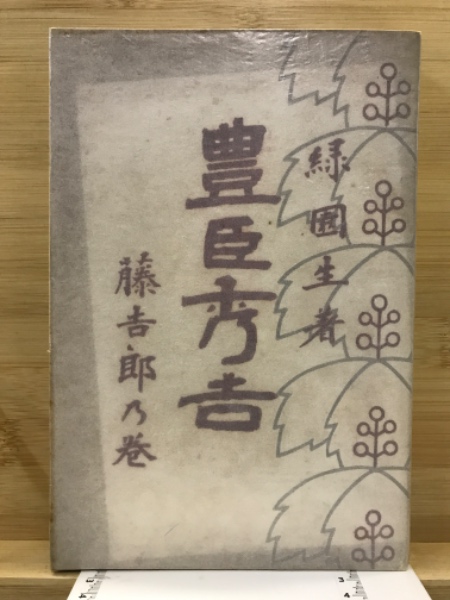 緑園生著
豊臣秀吉
藤吉郎乃巻